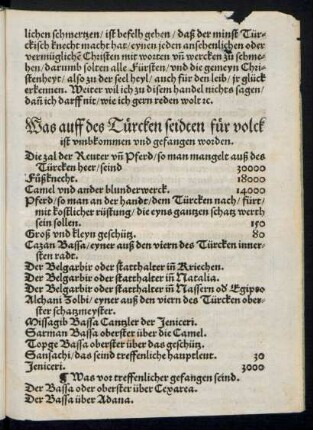 lichen schmertzen/ ist befelh geben/ daß der minst Tür-
ckisch knecht macht hat/ eynen jeden anschenlichen oder
vermüglichẽ Christen mit worten vñ wercken zu schme-
hen/ darumb solten alle Fürsten/ vnd die gemeyn Chri-
stenheyt/ also zu der seel heyl/ auch für den leib/ jr glück
erkennen. Weiter wil ich zu disem handel nichts sagen/
dañ ich darff nit/ wie ich gern reden wolt ꝛc.
Was auff des Türcken seidten für volck
ist vmbkommen vnd gefangen worden.
Die zal der Reuter vñ Pferd/ so man mangelt auß des
Türcken heer/ seind 30000
Fůßknecht. 18000
Camel vnd ander blunderwerck. 14000
Pferd/ so man an der handt/ dem Türcken nach/ fürt/
mit kostlicher rüstung/ die eyns gantzen schatz werth
sein sollen. 150
Groß vnd kleyn geschütz. 80
Cazan Bassa/ eyner auß den viern des Türcken inner-
sten radt.
Der Belgarbir oder statthalter iñ Kriechen.
Der Belgarbir oder statthalter iñ Natalia.
Der Belgarbir oder statthalter iñ Nassern od Egipto
Alchani Zolbi/ eyner auß den viern des Türcken ober-
ster schatzmeyster.
Missagib Bassa Cantzler der Jeniceri.
Sarman Bassa oberster über die Camel.
Topge Bassa oberster über das geschütz.
Sansachi/ das seind treffenliche hauptleut. 30
Jeniceri. 3000
¶ Was vor treffenlicher gefangen seind.
Der Bassa oder oberster über Cexarea.
Der Bassa über Adana.